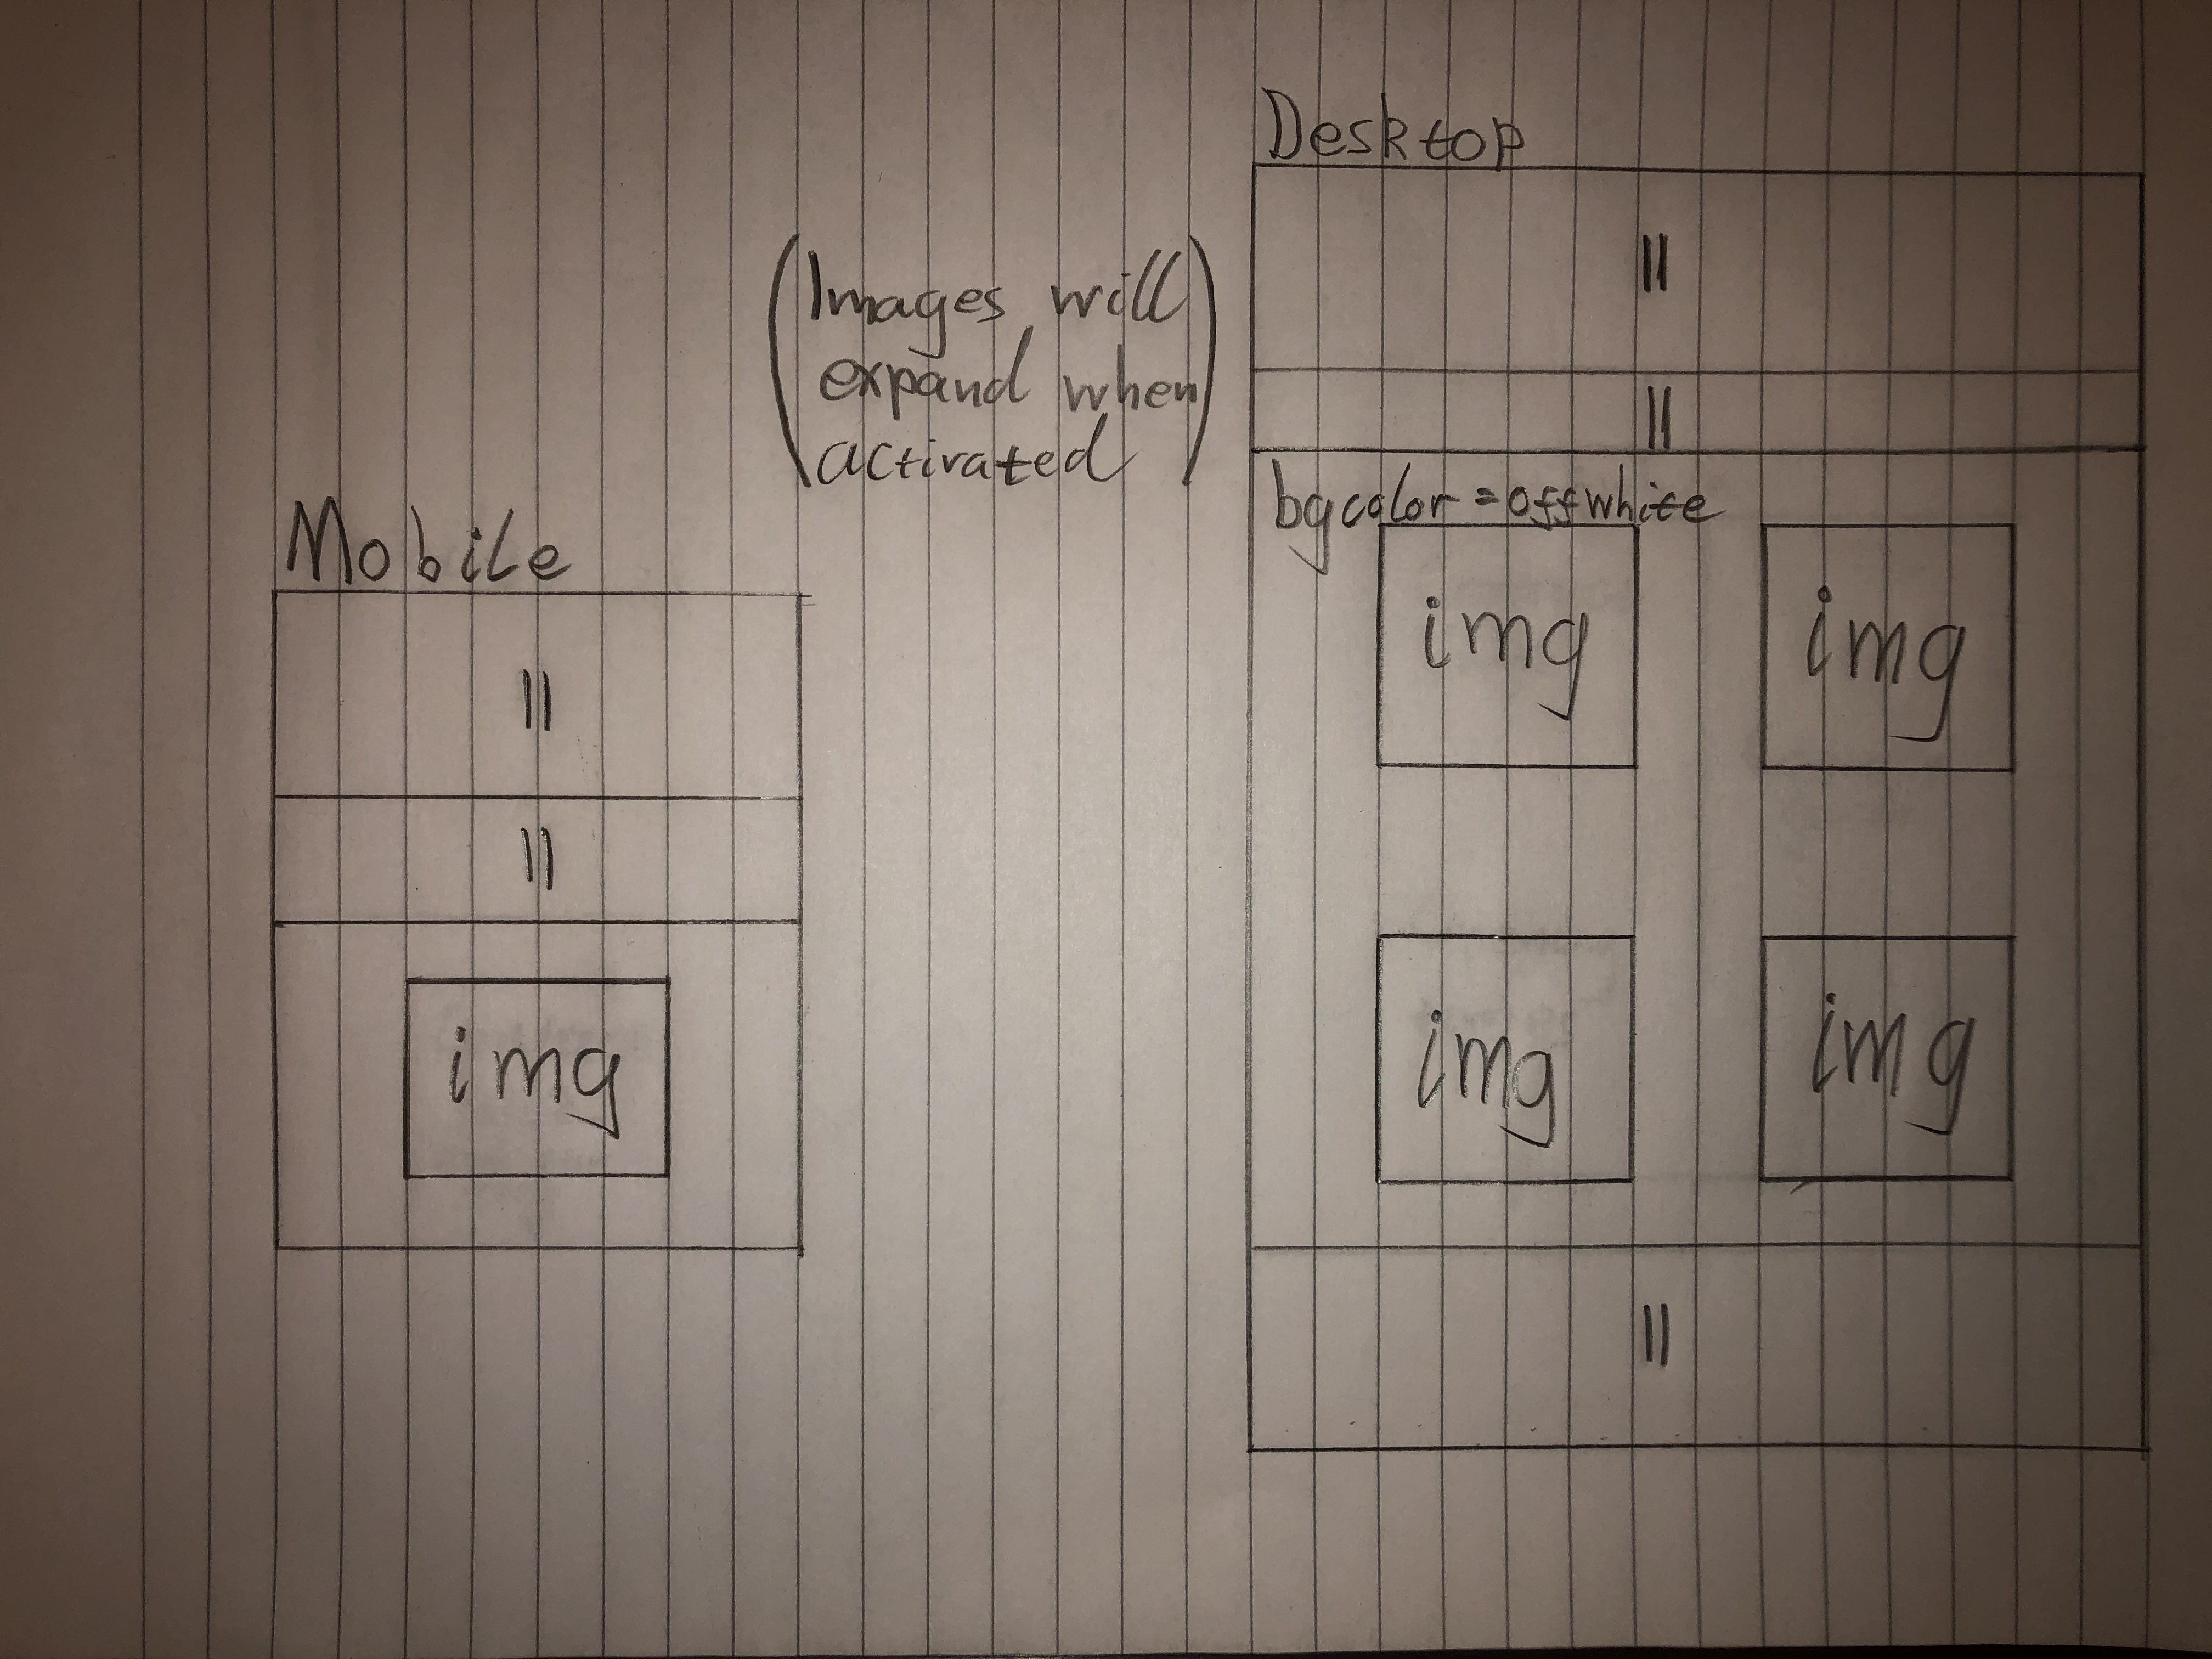 Mobile
=
=
img
(Images will
expand when
activated)
Desktop
=
=
bgcolor=offwhite
img img
img img
=